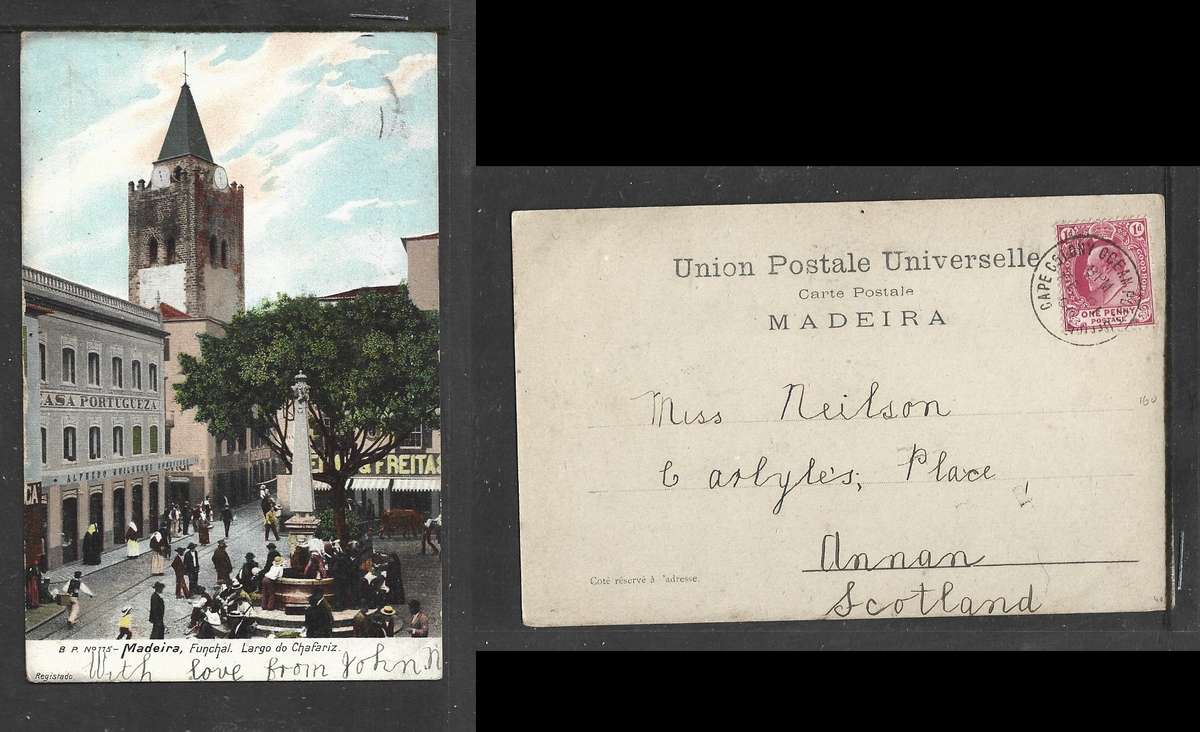 ASA PORTUGUEZA
ALFREDO GUILHERME
& FREITAS
CA
B P. Nº 115 - Madeira, Funchal. Largo do Chafariz.
Registado
With love from John N
Union Postale Universelle
Carte Postale
MADEIRA
CAPE COLONY OCEAN P.
PM
1d 1d
ONE PENNY
POSTAGE
Miss Neilson
160
Carlyle's, Place,
Annan
Coté réservé à l'adresse.
Scotland